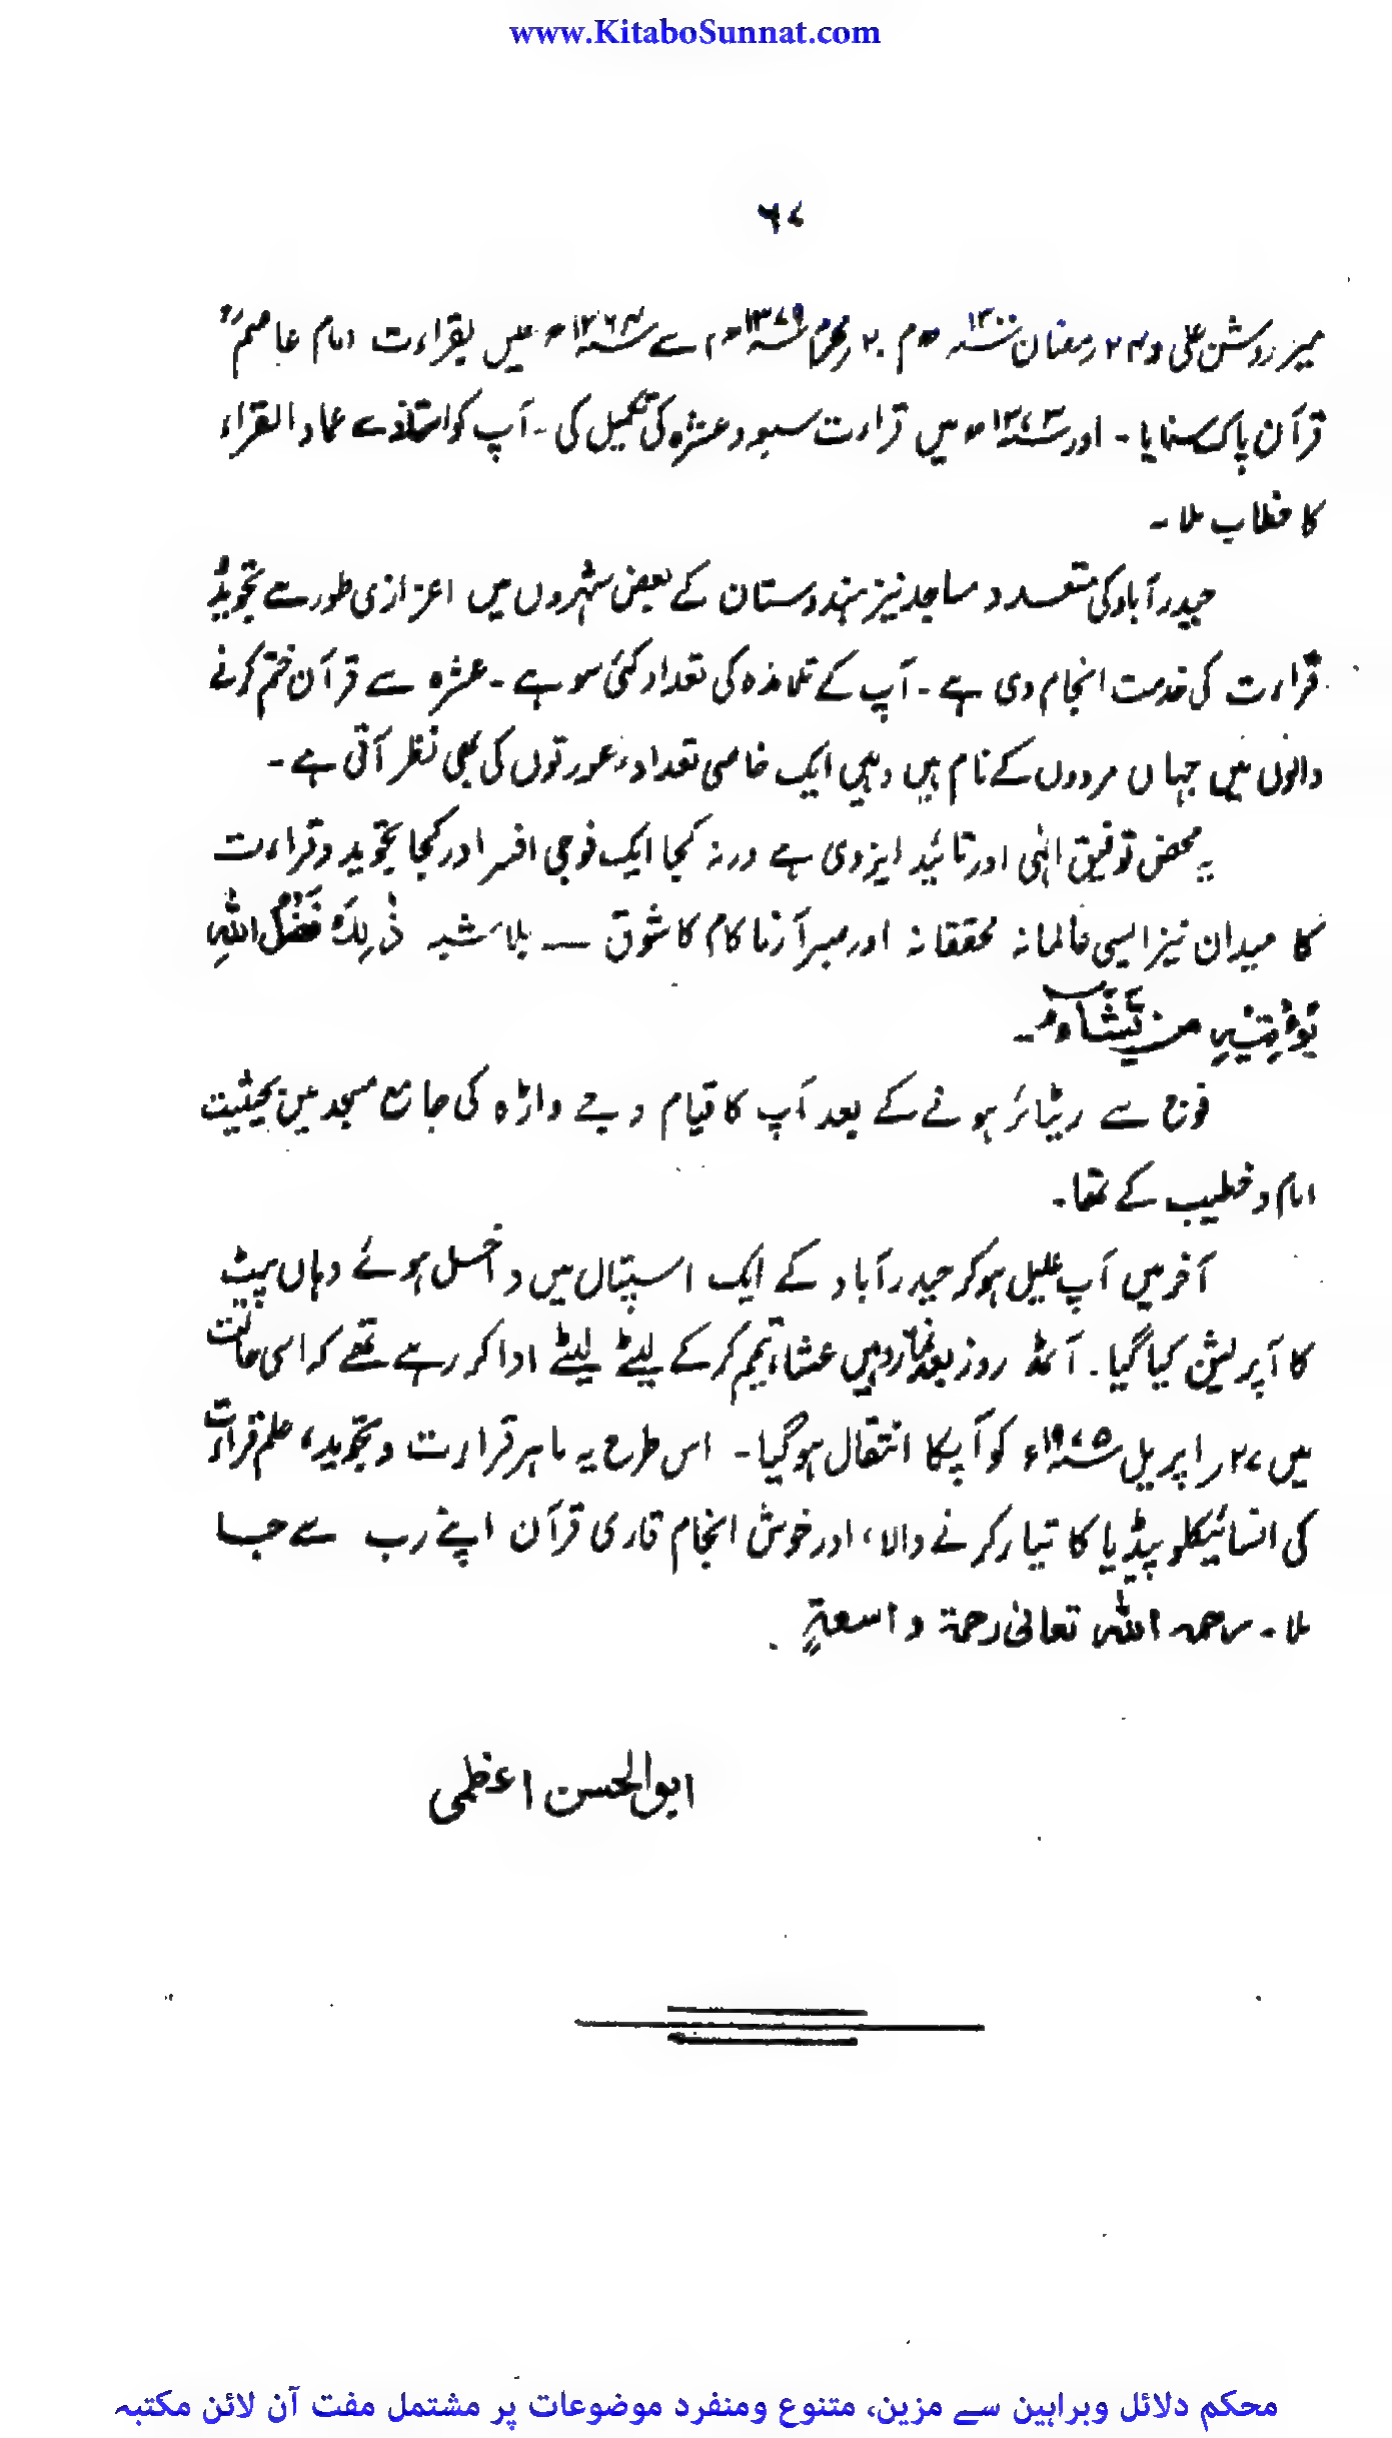 www.KitaboSunnat.com
۶۷
میر روشن علی و ۲۴ رمضان ۱۳۰۰ھ م ۲۰ محرم ۱۳۷۹ھ م سے ۱۳۶۴ھ میں بقراءت امام عاصمؒ
قرآن پاک سنایا۔ اور ۱۳۷۳ھ میں قراءت سبعہ وعشرہ کی تکمیل کی۔ آپ کو استاذ سے عماد القراء
کا خطاب ملا۔
حیدرآباد کی متعدد مساجد نیز ہندوستان کے بعض شہروں میں اعزازی طور سے تجوید و
قراءت کی خدمت انجام دی ہے۔ آپ کے تلامذہ کی تعداد کئی سو ہے۔ عشرہ سے قرآن ختم کرنے
والوں میں جہاں مردوں کے نام ہیں وہیں ایک خاصی تعداد عورتوں کی بھی نظر آتی ہے۔
یہ محض توفیق الٰہی اور تائید ایزدی ہے ورنہ کجا ایک فوجی افسر اور کجا تجوید وقراءت
کا میدان نیز ایسی عالمانہ محققانہ اور صبر آزما کام کا شوق — بلا شبہ ذٰلِکَ فَضْلُ اللّٰہِ
یُؤْتِیْہِ مَنْ یَّشَاءُ۔
فوج سے ریٹائر ہونے کے بعد آپ کا قیام وجے واڑہ کی جامع مسجد میں بحیثیت
امام و خطیب کے تھا۔
آخر میں آپ علیل ہو کر حیدرآباد کے ایک اسپتال میں داخل ہوئے وہاں پیٹ
کا آپریشن کیا گیا۔ آٹھ روز بعد نماز وہیں عشاء تیمم کر کے لیٹے لیٹے ادا کر رہے تھے کہ اسی حالت
میں ۲۷ر اپریل ۱۹۷۵ء کو آپکا انتقال ہو گیا۔ اس طرح یہ ماہر قراءت و تجوید، علم قراءت
کی انسائیکلو پیڈیا کا تیار کرنے والا، اور خوش انجام قاری قرآن اپنے رب سے جا
ملا۔ رحمہ اللہ تعالیٰ رحمۃ واسعۃٍ
ابوالحسن اعظمی
محکم دلائل وبراہین سے مزین، متنوع ومنفرد موضوعات پر مشتمل مفت آن لائن مکتبہ